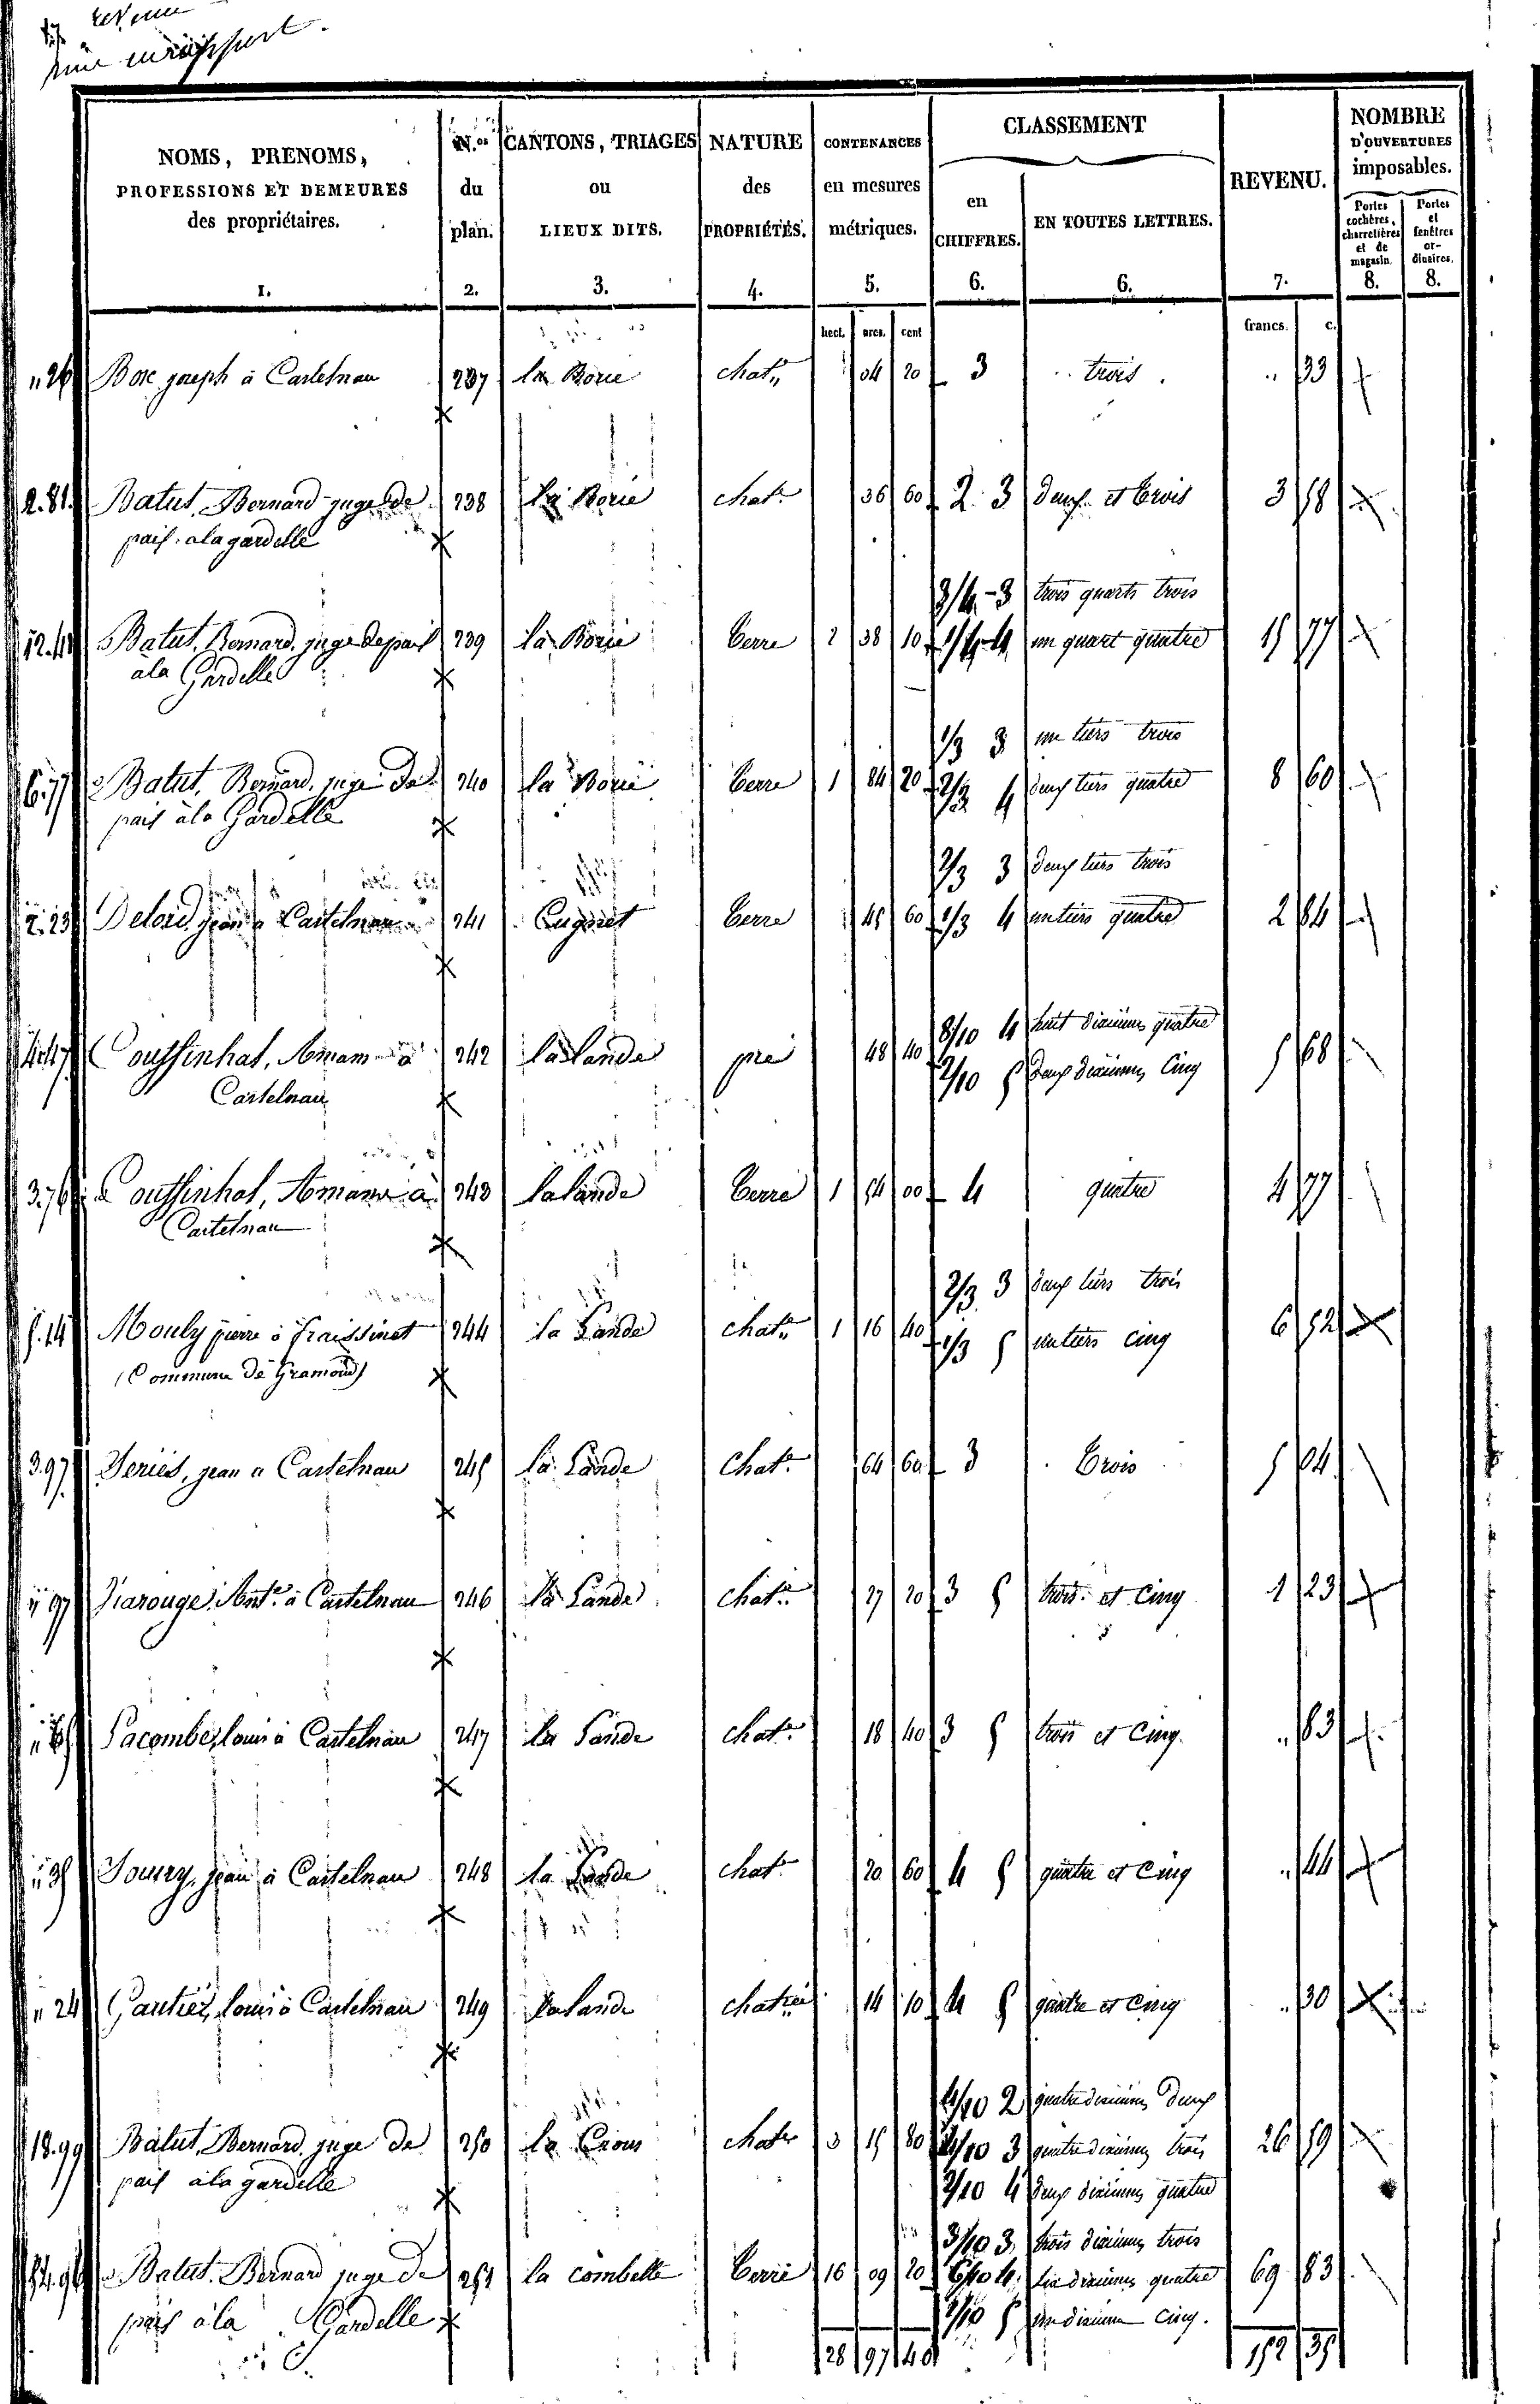 revenu
NOMS, PRENOMS,
PROFESSIONS ET DEMEURES
des propriétaires.
1.
N.os
du
plan.
2.
CANTONS, TRIAGES
ou
LIEUX DITS.
3.
NATURE
des
PROPRIÉTÉS.
4.
CONTENANCES
en mesures
métriques.
5.
CLASSEMENT
en
CHIFFRES.
6.
EN TOUTES LETTRES.
6.
REVENU.
7.
NOMBRE
D'OUVERTURES
imposables.
Portes
cochères,
charretières
et de
magasin.
8.
Portes
et
fenêtres
or-
dinaires.
8.
hect. ares. cent francs. c.
"26 Bosc joseph à Castelnau 237 la Borie chat" 04 20 3 trois . " 33
2.81. Batut, Bernard juge de 238 la Borie chat. 36 60 2. 3 deux et trois 3 58
paix à la gardelle
3/4 - 3 trois quarts trois
12.41 Batut, Bernard, juge de paix 239 la Borie terre 2 38 10 1/4 4 un quart quatre 15 77
à la Gardelle
1/3 3 un tiers trois
6.77 Batut, Bernard, juge de 240 la Borie terre 1 84 20 2/3 4 deux tiers quatre 8 60
paix à la Gardelle
2/3 3 deux tiers trois
2.23 Delord, jean à Castelnau 241 terre 45 60 1/3 4 un tiers quatre 2 84
8/10 4 huit dixièmes quatre
4.47 Couffinhat, Amans à 242 la lande pré 48 40 2/10 5 deux dixièmes Cinq 5 68
Castelnau
3.76 Couffinhat, Amans à 243 la lande terre 1 54 00 4 quatre 4 77
Castelnau
2/3 3 deux tiers trois
5.14 Mouly pierre à fraissinet 244 la Lande chat" 1 16 40 1/3 5 un tiers cinq 6 52
(Commune de Gramond)
3.97 jean à Castelnau 245 la Lande Chat. 64 60 3 Trois 5 04
" 97 Viarouge, Ant.e à Castelnau 246 la Lande chat. 27 20 3 5 trois et Cinq 1 23
Lacombe, louis à Castelnau 247 la Lande chat. 18 40 3 5 trois et Cinq. " 83
" 35 jean à Castelnau 248 la Lande chat. 20 60 4 5 quatre et Cinq " 44
" 24 Gautier, louis à Castelnau 249 la lande 14 10 4 5 quatre et Cinq " 30
4/10 2 quatre dixièmes Deux
18.99 Batut, Bernard, juge de 250 la Crous chat. 3 15 80 4/10 3 quatre dixièmes trois 26 59
paix à la gardelle 2/10 4 deux dixièmes quatre
3/10 3 trois dixièmes trois
54.96 Batut, Bernard juge de 251 la combelle terre 16 09 20 6/10 4 six dixièmes quatre 69 83
paix à la Gardelle 1/10 5 un dixième Cinq.
28 97 40 152 35